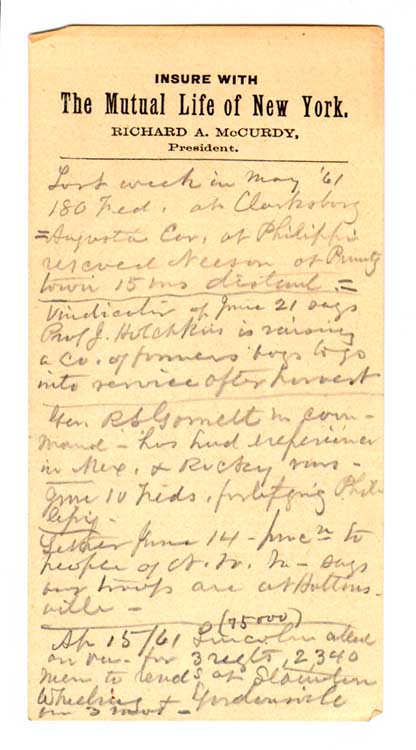 INSURE WITH
The Mutual Life of New York.
RICHARD A. McCURDY,
President.
Last week in May '61
180 Fed. at Clarksburg
= Augusta Cav. at Philippi
rescued Neeson at Prunty
town 15 ms distant =
Vindicator of June 21 says
Prof J. Hotchkiss is raising
a Co. of farmers' boys to go
into service after harvest
Gen. R S Garnett in com-
mand - has had experience
in Mex. & Rockey
June 10 Feds. fortifying Phil-
lipi -
Letter June 14 - to
people of N. W. Va - says
our troops are at Huttons-
ville -
(75000)
Ap 15/61 Lincoln called
on Va - for 3 regts, 2,340
men to rend at Staunton
Wheeling & Gordonsville